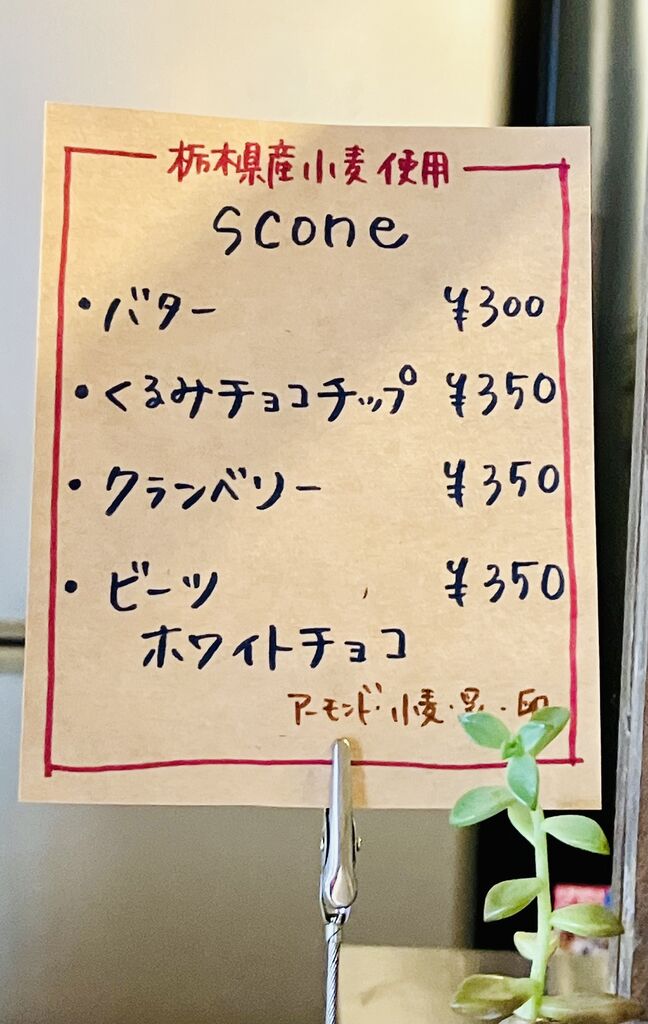 栃木県産小麦使用
scone
・バター ¥300
・くるみチョコチップ ¥350
・クランベリー ¥350
・ビーツ ¥350
ホワイトチョコ
アーモンド・小麦・